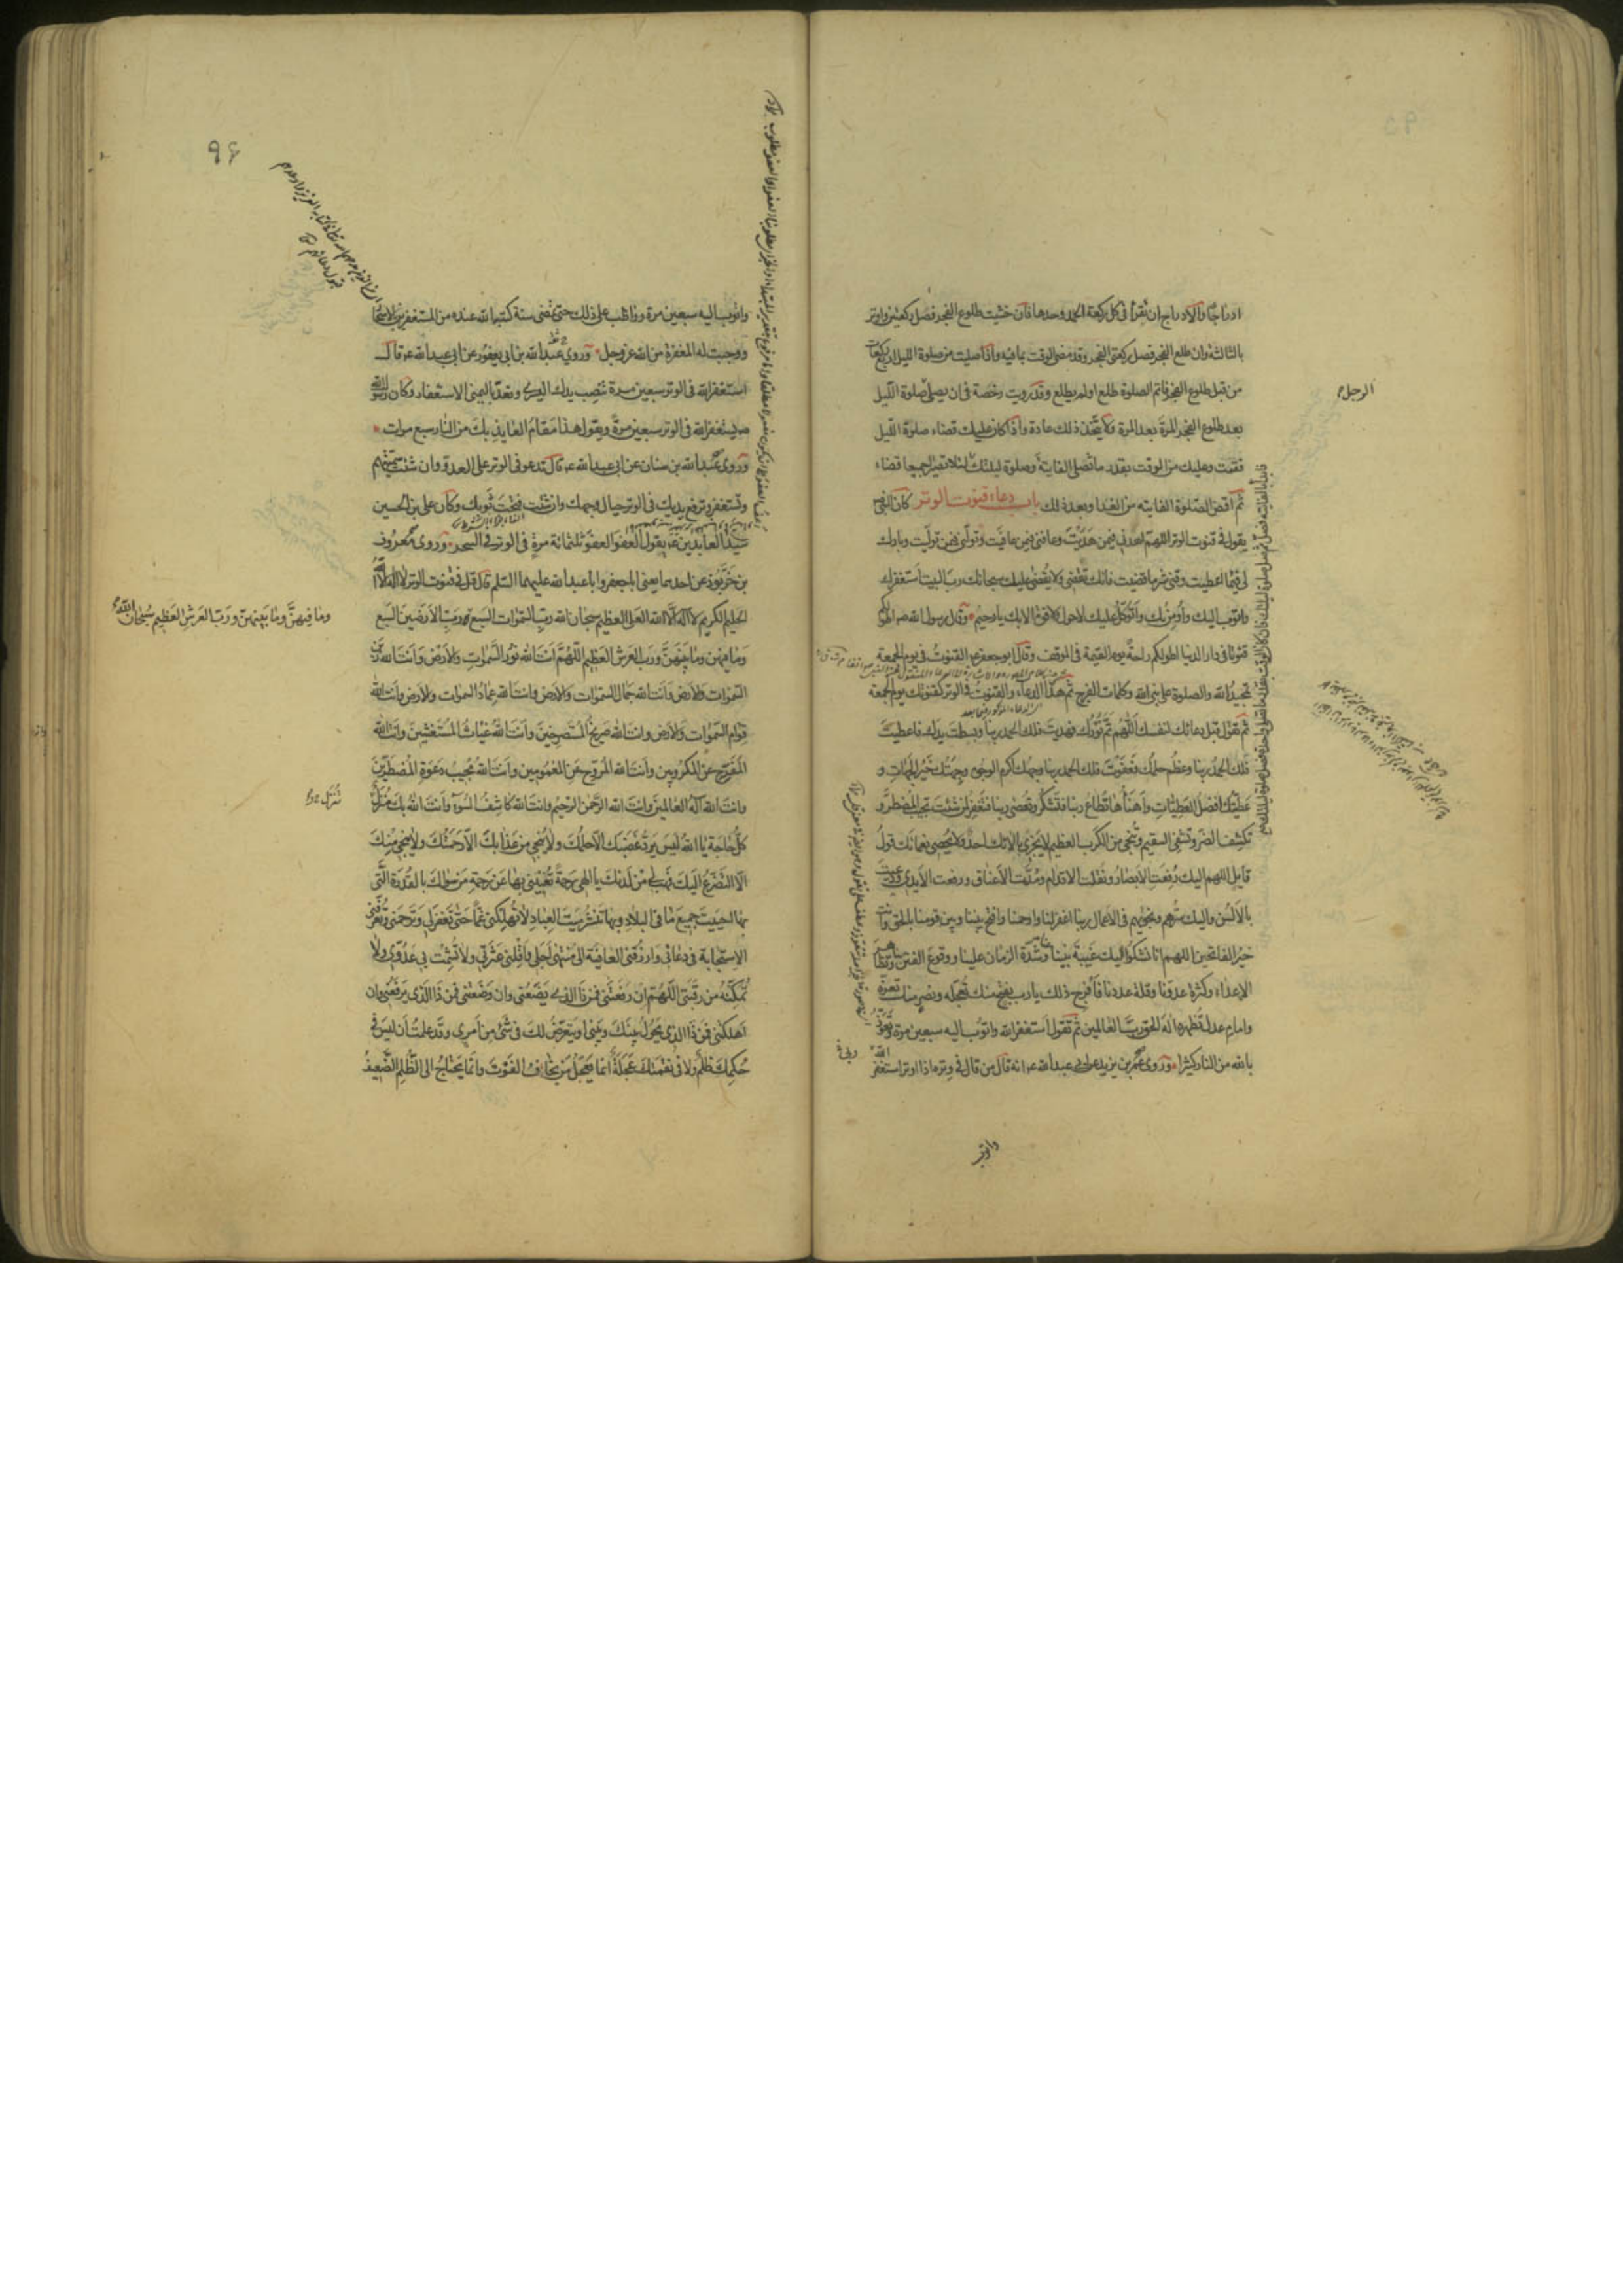 ادراجا والادراج ان تقرأ فی کل رکعة الحمد وحدها فان خشیت طلوع الفجر فصل رکعتین واوتر
بالثالثة وان طلع الفجر فصل رکعتی الفجر وقد مضی الوقت بما فیه واذا صلیت من صلوة اللیل اربع رکعات
من قبل طلوع الفجر فاتم الصلوة طلع او لم یطلع وقد رویت رخصة فی ان یصلی صلوة اللیل
الرجل
بعد طلوع الفجر المرة بعد المرة ولا یتخذ ذلک عادة واذا کان علیک قضاء صلوة اللیل
فقمت وعلیک من الوقت بقدر ما تصلی الفایتة وصلوة لیلتک
ثم اقض الصلوة الفایته من الغد او بعد ذلک باب دعاء قنوت الوتر کان النبی ص
یقول فی قنوت الوتر اللهم اهدنی فیمن هَدَیْتَ وعافنی فیمن عافَیتَ وتولّنی فیمن تولّیت وبارک
لی فیما اعطیت وقنی شر ما قضیت فانک تَقْضی ولا یُقضی علیک سبحانک رب البیت اَستَغفرک
واتوب الیک واُومِنُ بک واَتَوکّل علیک لاحول ولا قوة الا بک یا رحیم وقال رسول الله ص اطولکم
قنوتا فی دار الدنیا اطولکم راحةً یوم القیمة فی الموقف وقال ابو جعفر ع القنوتُ فی یوم الجمعة
تمجیدُ الله والصلوة علی نبی الله وکلمات الفرج ثم هذا الدعاء والقنوتُ فی الوتر کقنوتک یوم الجمعة
ثم تقول قبل دعائک لنفسک اَللّهم تَمَّ نُورُک فهدیتَ فلک الحمد ربنا وبسطتَ یدک فاعطیتَ
فلک الحمدُ ربنا وعظُم حلمُک فعَفَوْتَ فلک الحمد ربنا وجهُک اکرم الوجوه وجهتُک خَیْرُ الجهاتِ و
عَطیّتُک افضلُ العَطِیّاتِ واَهنَأُها تُطاعُ ربنا فتَشکُر وتُعصی ربنا فتَغفر لمن شئتَ تجیبُ المضطرَّ و
تکشِفُ الضرّ وتشفی السقیم وتُنجی من الکرب العظیم لایَجزی بآلائک احدٌ ولا یُحصی نعمائک قولُ
قایلٍ اللهم الیک رُفِعَتِ الاَبصارُ ونُقلت الاقدام ومُدَّتِ الاَعناق ورفعت الاَیدی ودعیتَ
بالاَلسُن والیک سرُّهم ونجویهم فی الاعمال ربنا اغفرلنا وارحمنا وافتح بیننا وبین قومنا بالحق وانت
خیرُ الفاتحین اللهم انا نَشکُو الیک غَیبةَ نبیّنا وشدّةَ الزمان علینا ووقوعَ الفتن بنا وتظاهر
الاعداء وکثرة عدوّنا وقلة عددنا فافرُج ذلک یا رب بفتحٍ منک تُعجّله ونصرٍ منک تعزّه
وامامِ عدلٍ تُظهره اِلهَ الحق ربَّ العالمین ثم تقول اَستغفر الله ربی واتوب الیه سبعین مرة وتعوّذ
بالله من النار کثیرا وروی عمر بن یزید عن ابی عبد الله ع انه قال من قال فی وِتره اذا اوتر استغفر الله
واتوب
٩۶
واتوب الیه سبعین مرة وواظب علی ذلک حتی تمضی سنة کتبه الله عنده من المستغفرین بالاسحار
ووجبت له المغفرة من الله عز وجل وروی عبد الله بن ابی یعفور عن ابی عبد الله ع قال
استغفر الله فی الوتر سبعین مرة تَنصِب یدک الیسری وتعدّ بالیمنی الاستغفار وکان رسول الله
ص یستغفر الله فی الوتر سبعین مرة ویقول هذا مَقامُ العایذِ بکَ من النار سبع مرات
وروی عبد الله بن سنان عن ابی عبد الله ع قال تدعو فی الوتر علی العدو وان شئت سمّیتهم
وتستغفر وترفع یدیک فی الوتر حیال وجهک وان شئت فتحت ثوبک وکان علی بن الحسین
سیّدُ العابدین ع یقول العفو العفو ثلثمائة مرةٍ فی الوتر فی السحر وروی معروف
بن خَرَّبُوذ عن احدهما یعنی ابا جعفر وابا عبد الله علیهما السلم قال قل فی قنوت الوتر لا اله الا الله
الحلیم الکریم لا اله الا الله العلی العظیم سبحان الله ربِّ السّموات السَبع ورَبِّ الاَرَضینَ السَبع
وما فیهنَّ وما بَینهنّ ورَبِّ العَرشِ العَظیم سُبحان الله
وَما فیهن وما بَینَهنَّ وربّ العَرش العَظیم اَللّهُمَّ اَنتَ الله نُورُ السَّمواتِ والاَرْض وَاَنتَ الله زین
السّموات والاَرض وَاَنتَ الله جَمالُ السّموات والاَرض وانتَ الله عِمادُ السموات والاَرض وانتَ الله
قِوام السّموات والاَرض وانتَ الله صَریخُ المُستَصرخینَ وَاَنتَ الله غیاثُ المُستَغیثینَ وانتَ الله
المُفَرّج عن المَکرُوبین واَنتَ الله المُرَوِّح عَنِ المَغمُومین واَنتَ الله مُجیبُ دَعوَةِ المُضطَرّینَ
وانتَ الله الهُ العالمینَ وانتَ الله الرَّحمنُ الرّحیمُ وانتَ الله کاشِفُ السُوءِ وَاَنتَ الله بِکَ مُنْزَلٌ
کلُّ حاجة یا الله لَیسَ یَردُّ غَضَبَک اِلّا حِلمُکَ ولا یُنجی من عَذابِکَ اِلّا رَحمَتُکَ ولا یُنجی مِنکَ
اِلّا التَضَرُّعُ اِلَیکَ فَهَب لی مِنْ لَدُنکَ یا اِلهی رَحمةً تُغنینی بها عَن رَحمةِ مَن سِواکَ بالقُدرَةِ الّتی
بها احیَیتَ جمیعَ ما فی البلادِ وبها تَنشُر مَیتَ العِبادِ ولا تُهلِکنی غَمّاً حَتّی تَغفِرَلی وتَرحَمَنی وتُعَرِّفنی
الاِستِجابة فی دُعائی وارزُقنی العافیةَ الی مُنتَهی اَجَلی واَقِلنی عَثرَتی ولا تُشمِت بی عَدُوّی ولا
تُمَکِّنْه من رقَبَتی اَللّهُمّ اِن رَفَعتَنی فمَن ذَا الّذی یَضَعُنی وان وَضَعتَنی فمَن ذَا الّذی یَرفَعُنی وان
اَهلَکتَنی فمَن ذَا الّذی یَحُولُ بَینَکَ وبَینی او یَتَعَرّضُ لَکَ فی شَیءٍ مِن اَمری وقَد عَلِمتُ اَن لَیسَ فی
حُکمِکَ ظُلمٌ ولا فی نقَمتِکَ عَجَلَةٌ اِنّما یَعجَلُ مَن یَخافُ الفَوتَ وانّما یَحتاجُ الی الظُّلمِ الضَّعیفُ